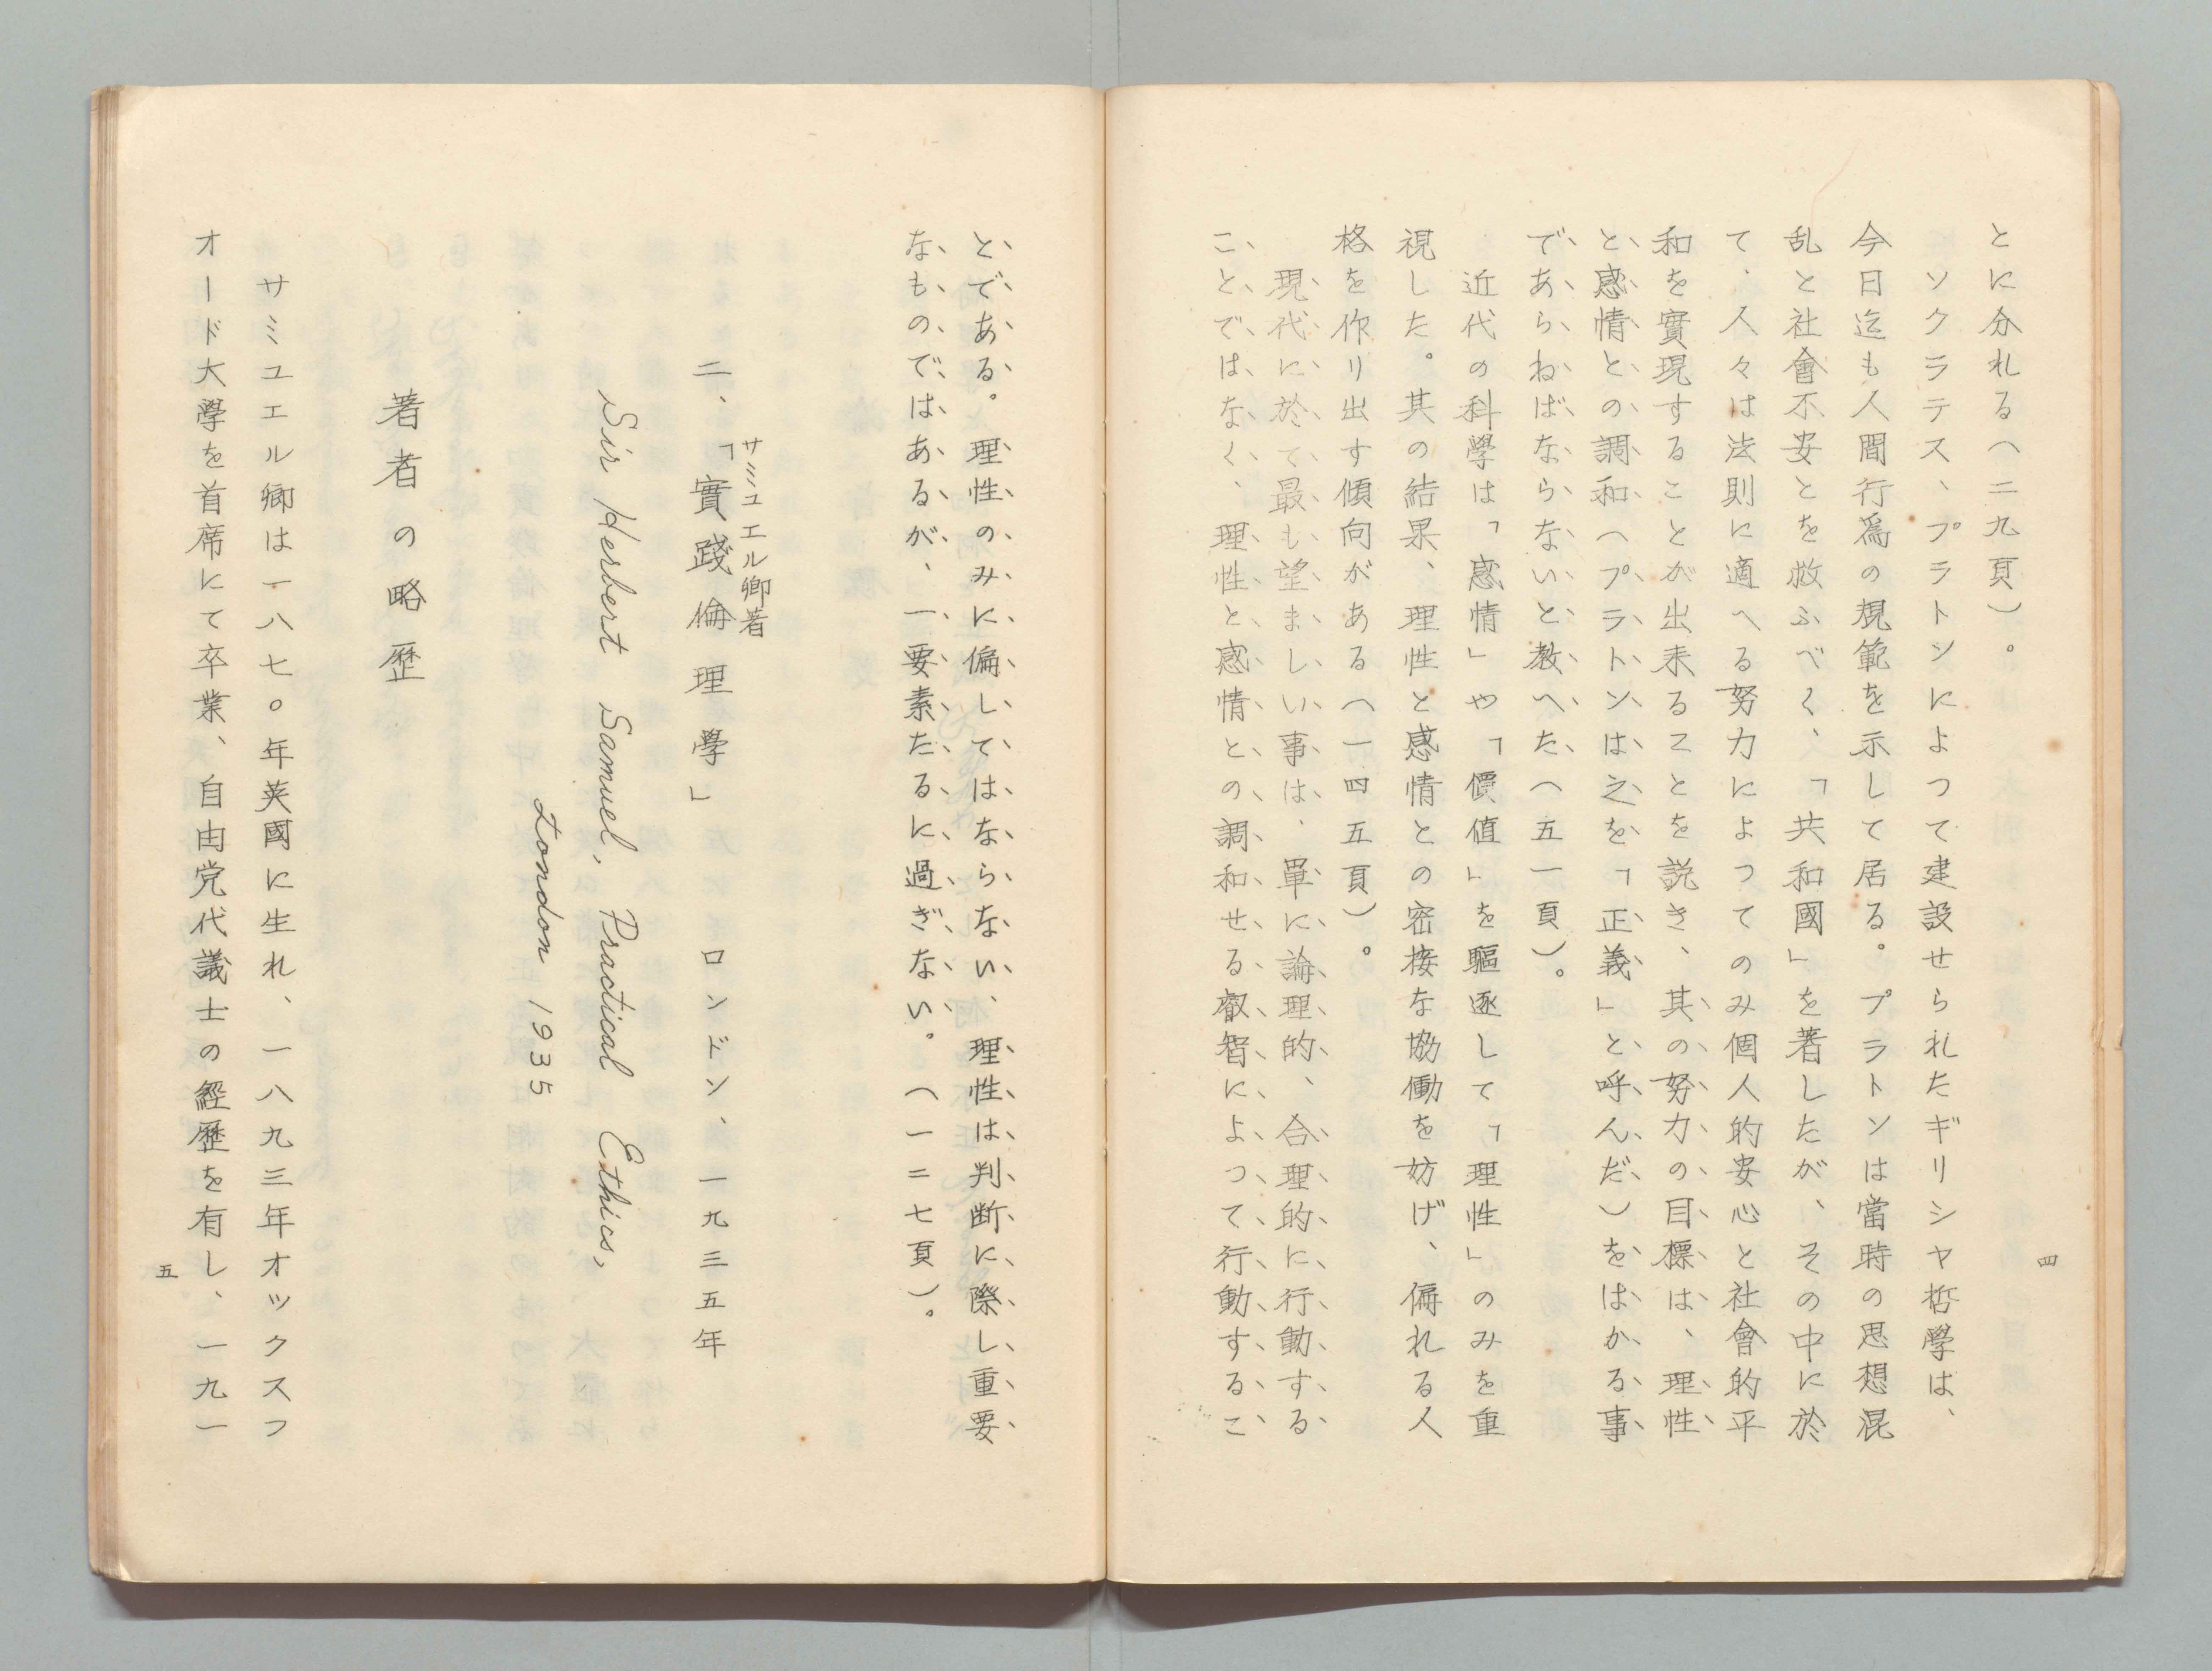 とに分れる（二九頁）。
ソクラテス、プラトンによつて建設せられたギリシヤ哲學は、
今日迄も人間行爲の規範を示して居る。プラトンは當時の思想混
乱と社會不安とを救ふべく、「共和國」を著したが、その中に於
て、人々は法則に適へる努力によつてのみ個人的安心と社會的平
和を實現することが出来ることを説き、其の努力の目標は、理性
と感情との調和（プラトンは之を「正義」と呼んだ）をはかる事
であらねばならないと教へた（五一頁）。
近代の科學は「感情」や「價値」を驅逐して「理性」のみを重
視した。其の結果、理性と感情との密接な協働を妨げ、偏れる人
格を作り出す傾向がある（一四五頁）。
現代に於て最も望ましい事は、單に論理的、合理的に行動する
ことではなく、理性と感情との調和せる叡智によつて行動するこ
四
とである。理性のみに偏してはならない、理性は判断に際し重要
なものではあるが、一要素たるに過ぎない。（一二七頁）。
サミユエル卿著
二、「實踐倫理學」 ロンドン、一九三五年
Sir Herbert Samuel, Practical Ethics,
London 1935
著者の略歴
サミユエル卿は一八七〇年英國に生れ、一八九三年オツクスフ
オード大學を首席にて卒業、自由党代議士の經歷を有し、一九一
五